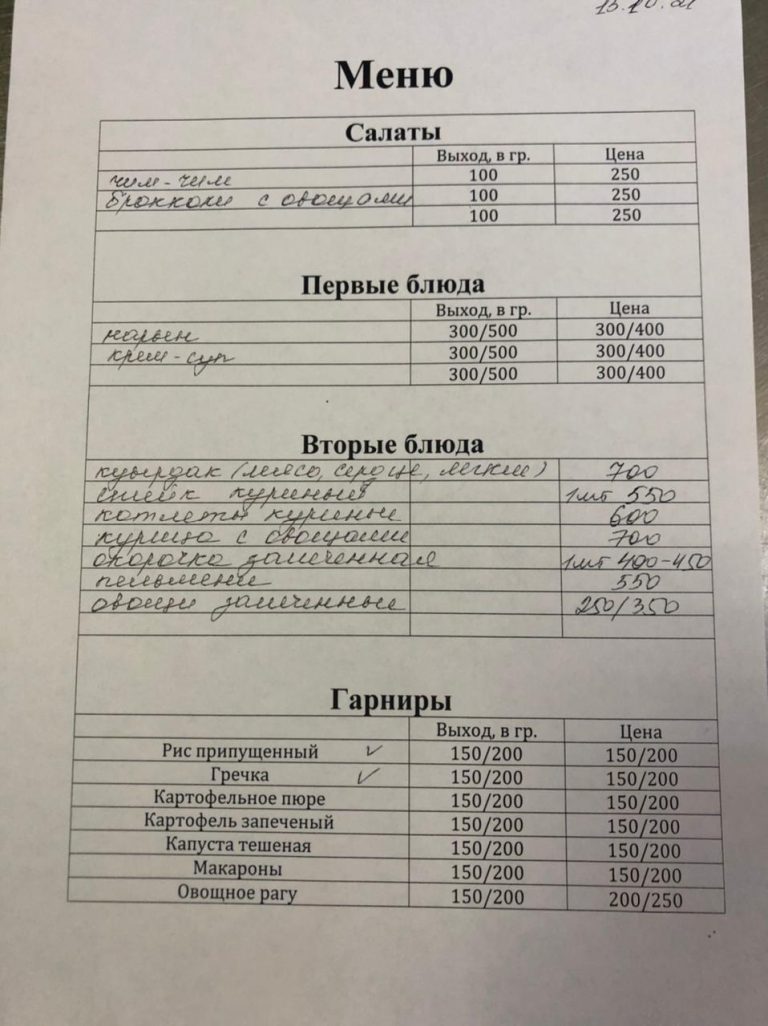 15.10.21
Меню
Салаты
Выход, в гр. Цена
чим-чим 100 250
брокколи с овощами 100 250
100 250
Первые блюда
Выход, в гр. Цена
нарын 300/500 300/400
крем-суп 300/500 300/400
300/500 300/400
Вторые блюда
куырдак (мясо, сердце, легкие) 700
стейк куриный 1шт 550
котлеты куриные 600
курица с овощами 700
окорочка запеченная 1шт 400-450
пельмени 550
овощи запеченные 250/350
Гарниры
Выход, в гр. Цена
Рис припущенный 150/200 150/200
Гречка 150/200 150/200
Картофельное пюре 150/200 150/200
Картофель запеченый 150/200 150/200
Капуста тешеная 150/200 150/200
Макароны 150/200 150/200
Овощное рагу 150/200 200/250